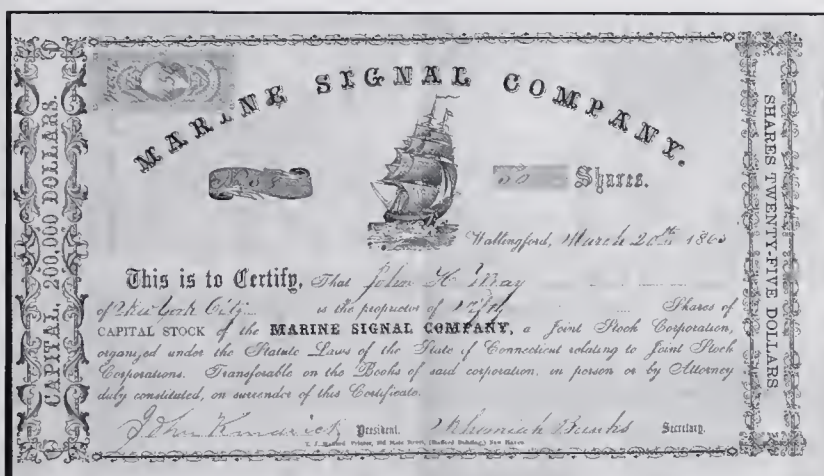 MARINE SIGNAL COMPANY.
CAPITAL, 200,000 DOLLARS.
SHARES TWENTY-FIVE DOLLARS
50 Shares.
Wallingford, March 20th 186
This is to Certify, That John H
of New York City is the proprietor of Fifty Shares of
CAPITAL STOCK of the MARINE SIGNAL COMPANY, a Joint Stock Corporation,
organized under the Statute Laws of the State of Connecticut relating to Joint Stock
Corporations. Transferable on the Books of said corporation, in person or by Attorney
duly constituted, on surrender of this Certificate.
John Kendrick President. Nehemiah Banks Secretary.
Printer, State Street, New Haven